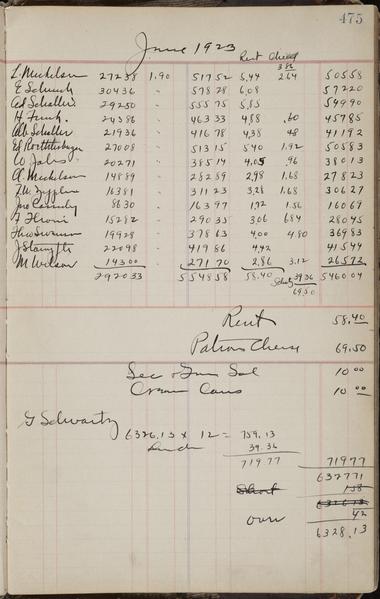 475
June 1923
Rent Cheese
386
L. Mickelson 27238 1.90 51752 5,44 264 50558
E Schmidt 30436 " 57828 6,08 57220
Ad Schaller 29250 " 55575 5,85 54990
H Funk. 24386 " 46333 4,88 .60 45785
Alb Schaller 21936 " 41678 4,38 48 41192
27008 " 51315 5,40 1.92 50583
20271 " 38514 4,05 .96 38013
A. Mickelson 14889 " 28289 2,98 1.68 27823
16381 " 31123 3,28 1.68 30627
8630 " 16397 1,72 1.56 16069
15282 " 29035 3,06 684 28045
Theo Swanson 19928 " 37863 4,00 4.80 36983
J Stampfli 22098 " 41986 4,42 41544
M Wilson 14300 " 27170 2,86 3.12 26572
292033 554858 58.40 39.36 546004
69.50
Rent 58.40
Patrons Cheese 69.50
Sec & Sal 10 00
Cream Cans 10 00
G Schwartz
6326.13 x 12 = 759.13
39.36
71977 71977
632771
158
Short
over 42
6328.13